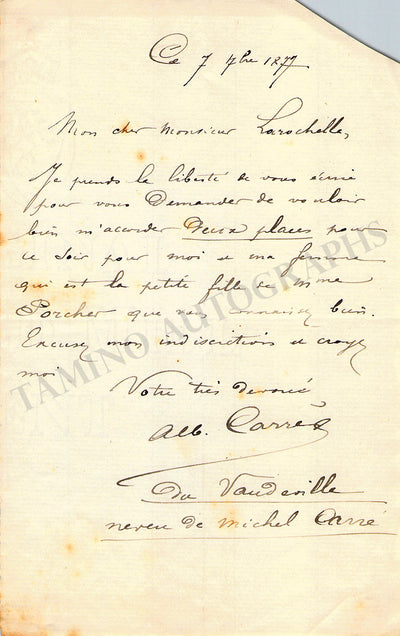 Ce 7 7bre 1877
Mon cher Monsieur Larochelle,
Je prends la liberté de vous écrire
pour vous Demander de vouloir
bien m'accorder Deux places pour
ce Soir pour moi et ma femme
qui est la petite fille de Mme
Porcher que vous connaissez bien.
Excusez mon indiscrétion et croyez
moi
Votre très dévoué
Alb. Carré
du Vaudeville
neveu de Michel Carré
TAMINO AUTOGRAPHS